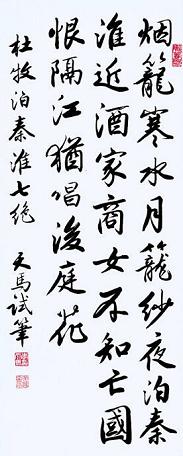 烟籠寒水月籠紗夜泊秦
淮近酒家商女不知亡國
恨隔江猶唱後庭花
杜牧泊秦淮七绝 馬试筆